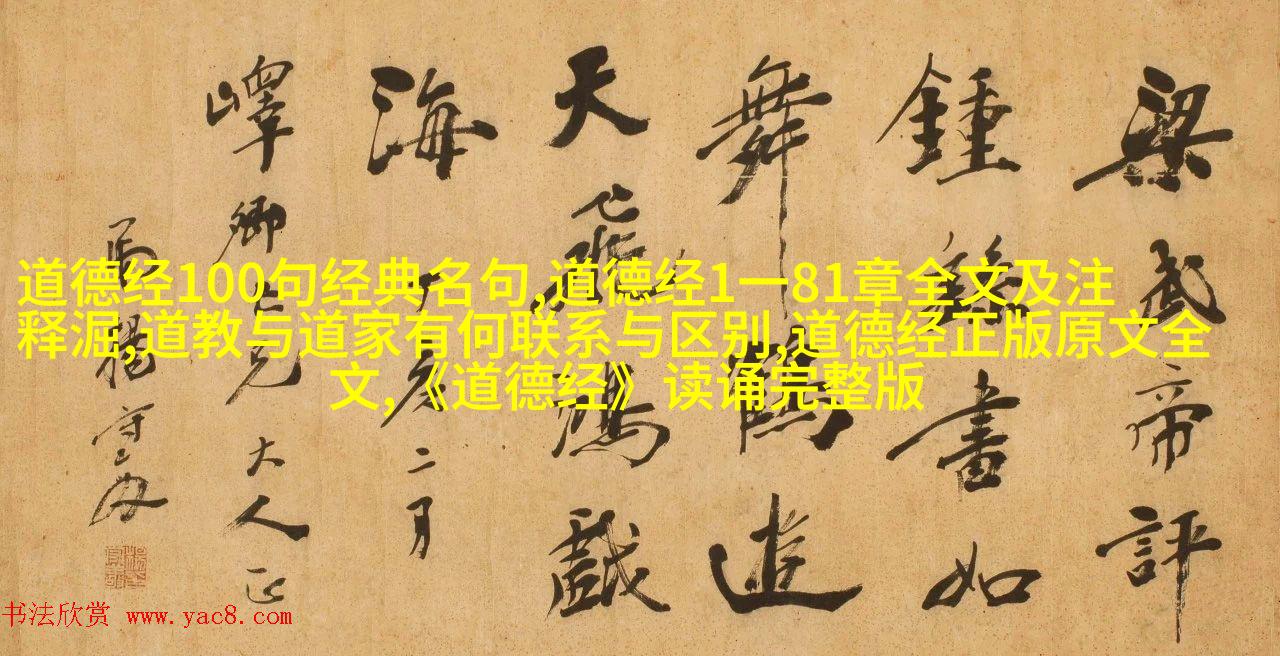 梁武帝評
鍾繇書如
舞鶴遊
天飛鴻戲
海
丁亥二月
嶧卿仁兄大人正
楊守敬
道德经100句经典名句,道德经1一81章全文及注
释淈,道教与道家有何联系与区别,道德经正版原文全
文,《道德经》读诵完整版
书法欣赏 www.yac8.com